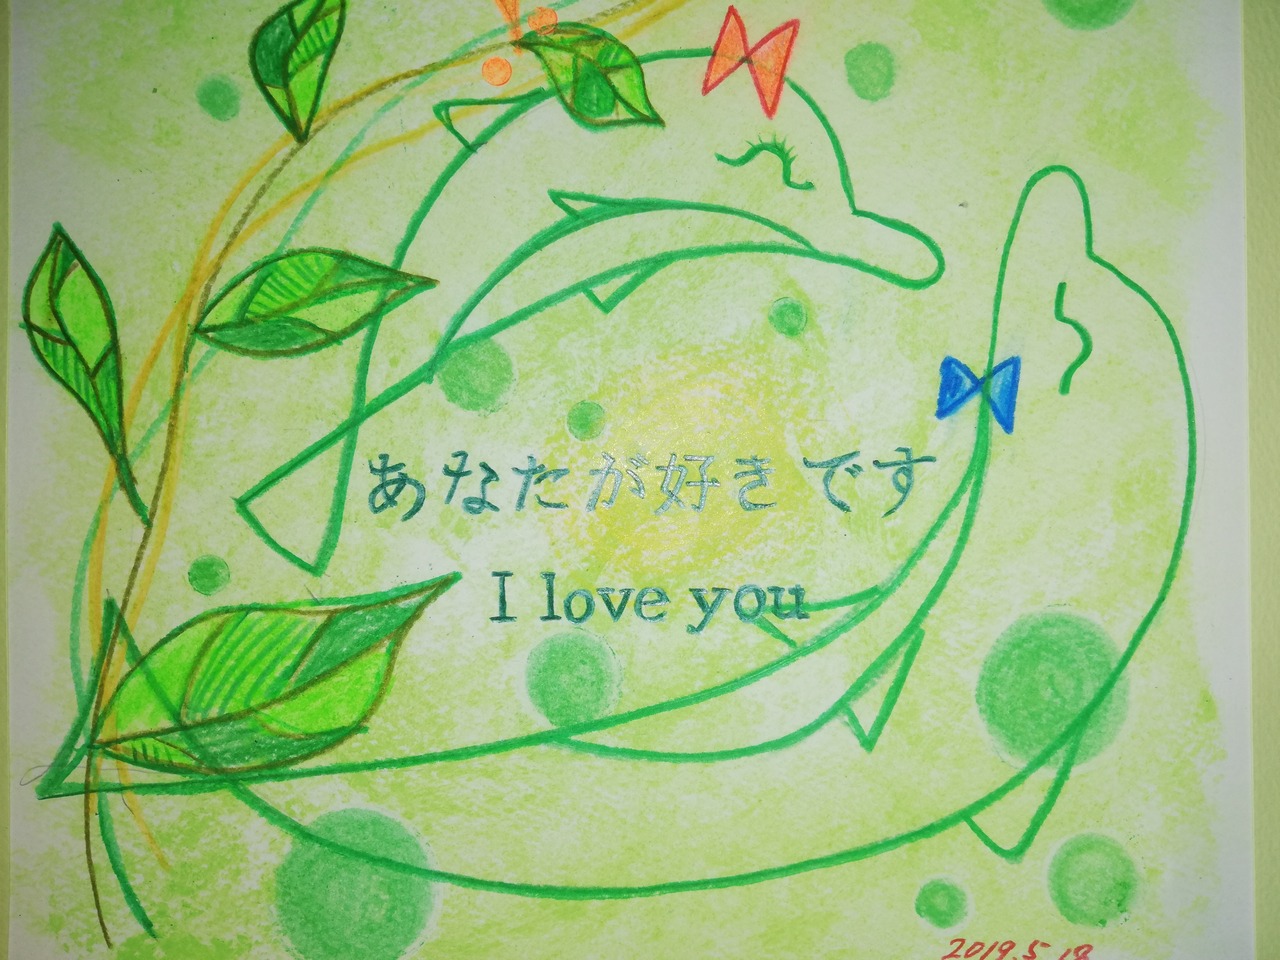 あなたが好きです
I love you
2019.5.19